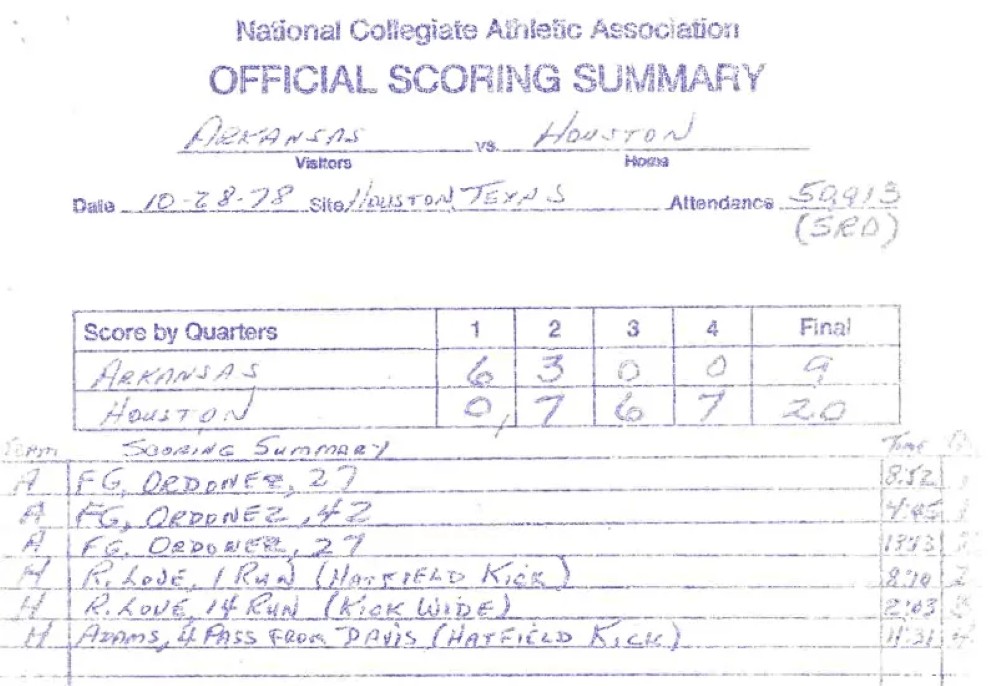 National Collegiate Athletic Association
OFFICIAL SCORING SUMMARY
ARKANSAS vs. HOUSTON
Visitors Home
Date 10-28-78 Site HOUSTON, TEXAS Attendance 50,913
(SRO)
Score by Quarters 1 2 3 4 Final
ARKANSAS 6 3 0 0 9
HOUSTON 0 7 6 7 20
TEAM SCORING SUMMARY TIME
A FG, ORDONEZ, 27 8:52 1
A FG, ORDONEZ, 42 4:45 1
A FG, ORDONEZ, 27
H R. LOVE, 1 RUN (HATFIELD KICK) 8:10 2
H R. LOVE, 14 RUN (KICK WIDE) 2:03 3
H ADAMS, 4 PASS FROM DAVIS (HATFIELD KICK) 11:31 4